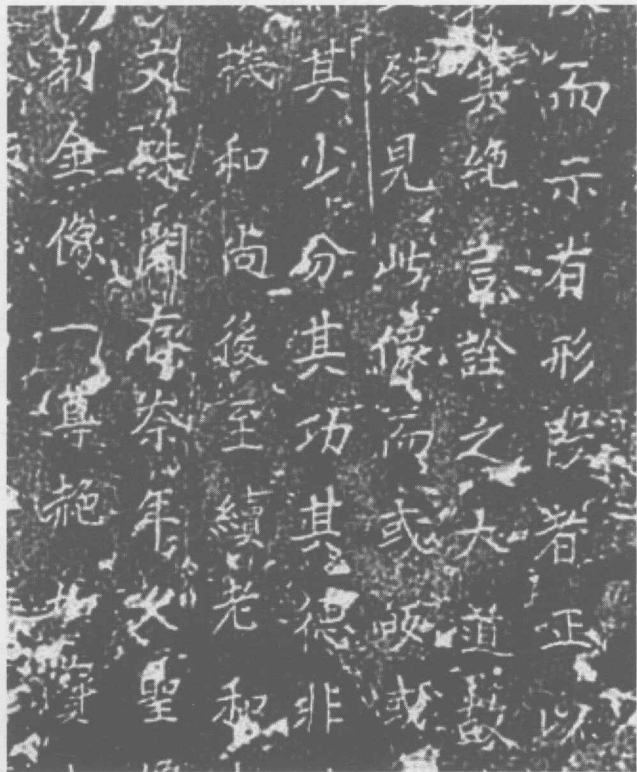 而示有形段者正以
其絶言詮之大道
殊見此像而或或
其少分其功其德非
機和尚後至續老和
文殊閣存奈年大聖
刻金像一尊絶